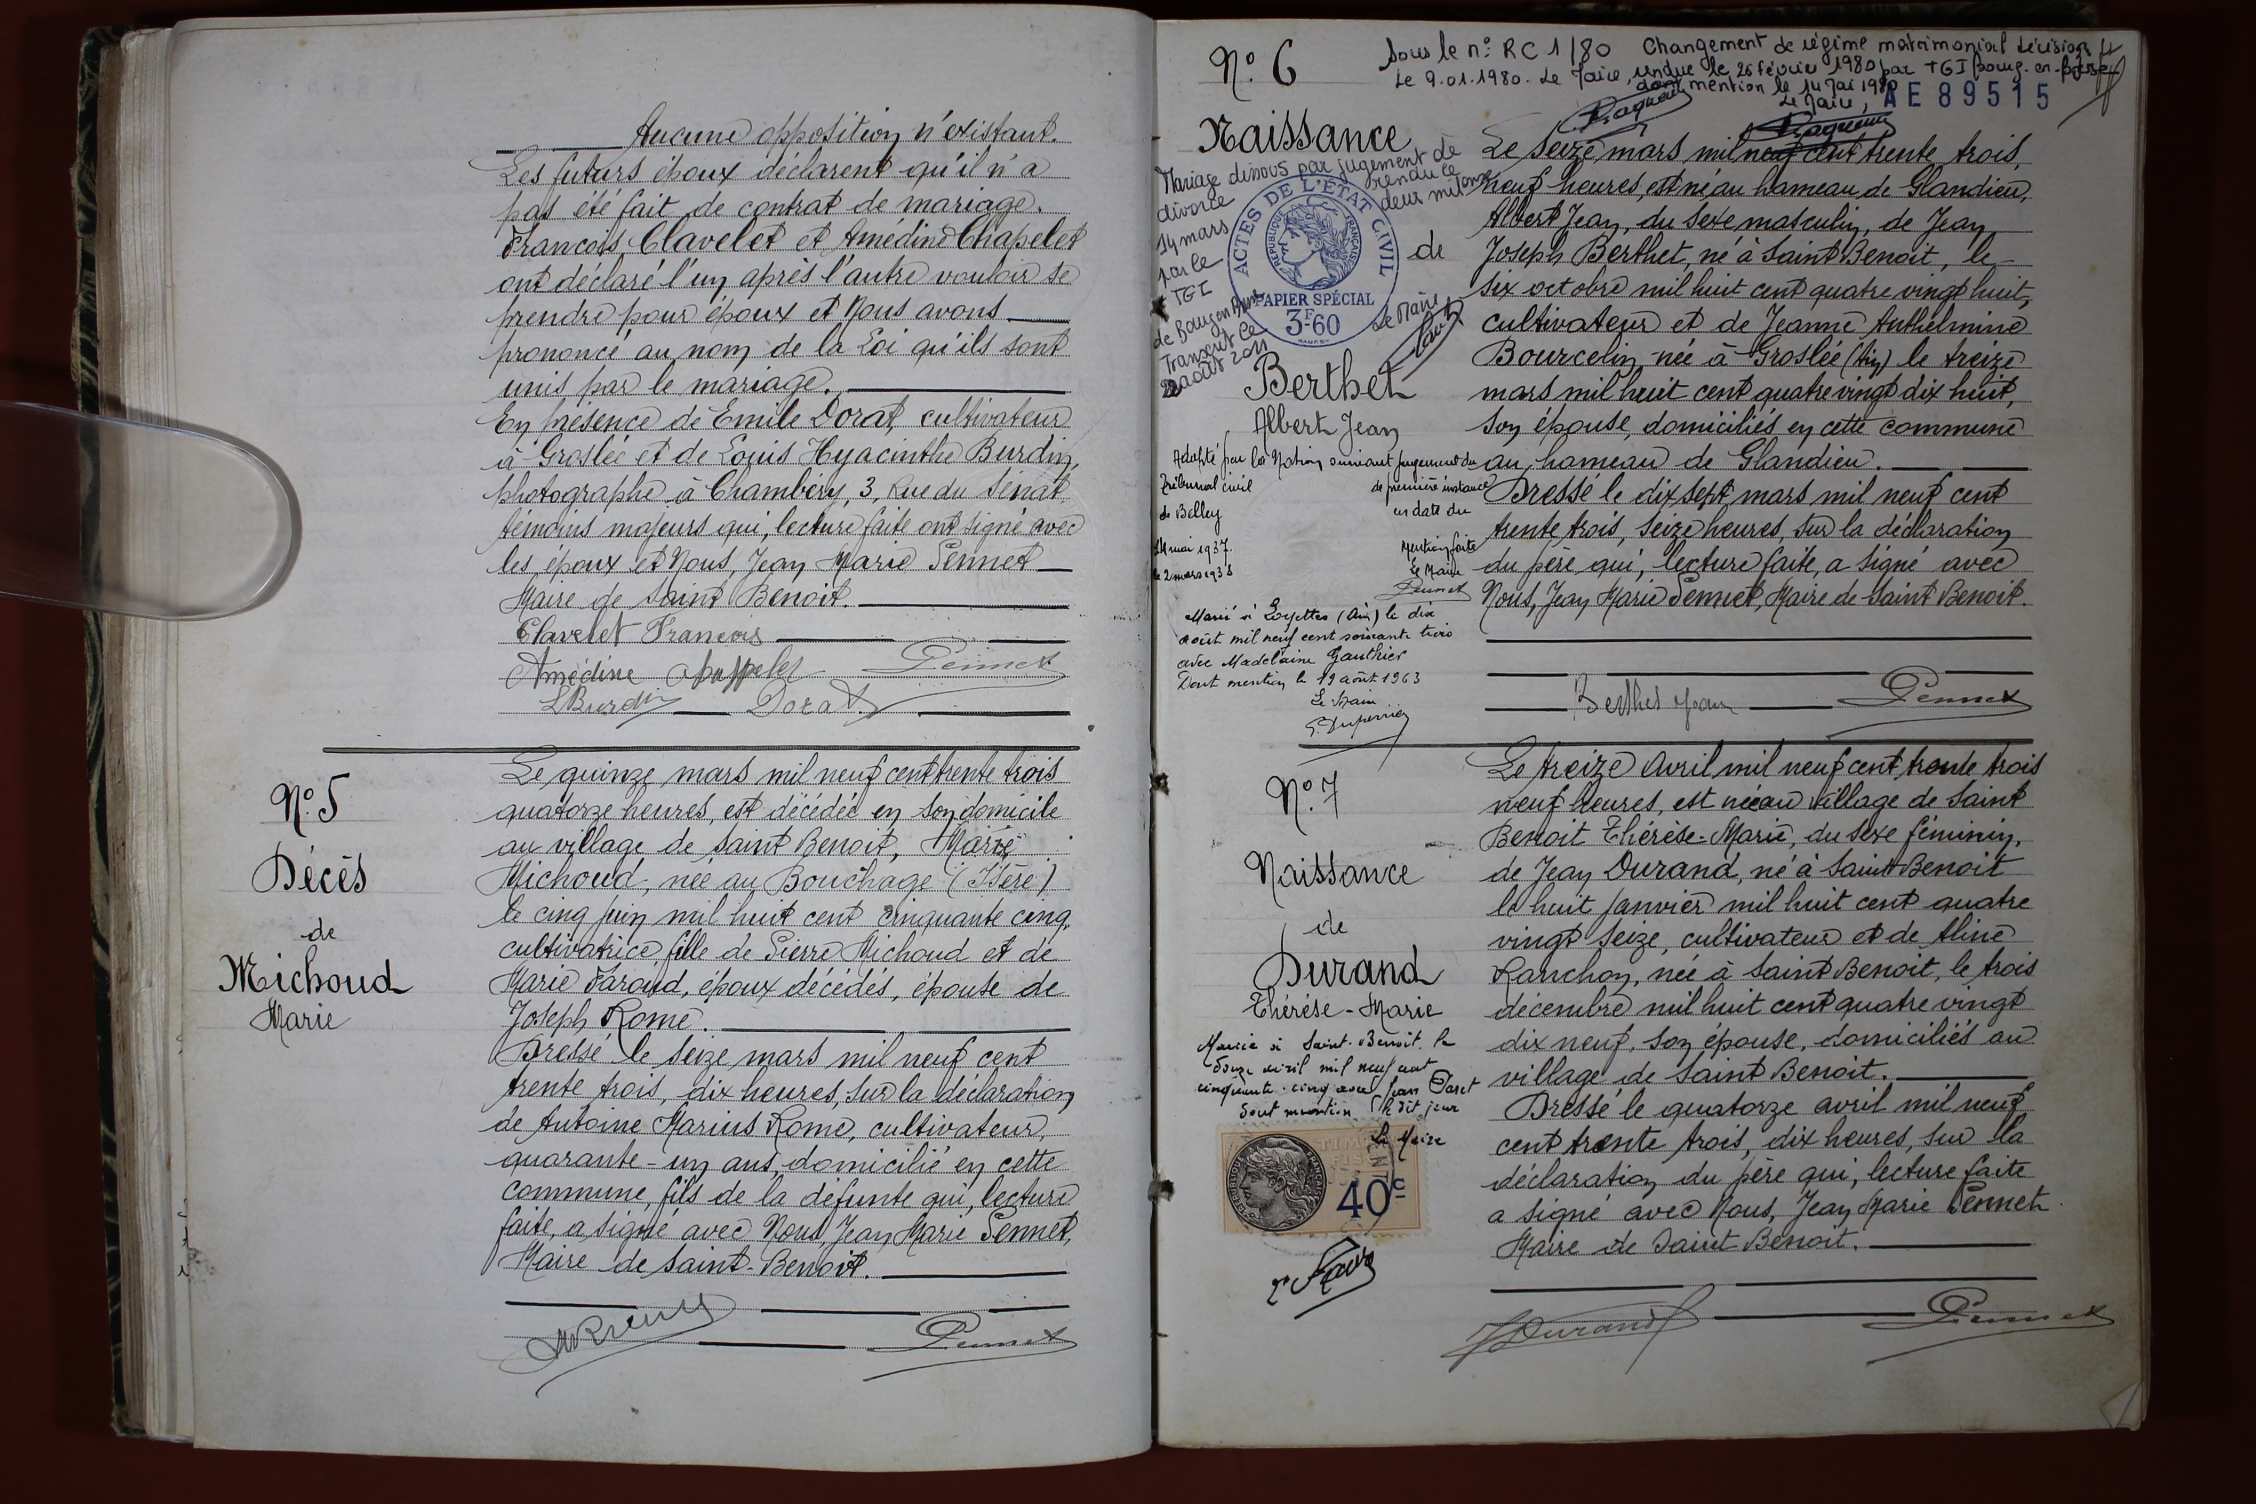 Aucune opposition n'existant.
Les futurs époux déclarent qu'il n'a
pas été fait de contrat de mariage.
François Clavelet et Amédine Chapelet
ont déclaré l'un après l'autre vouloir se
prendre pour époux et Nous avons
prononcé au nom de la Loi qu'ils sont
unis par le mariage.
En présence de Emile Dorat, cultivateur
à Groslée et de Louis Hyacinthe Burdin,
photographe à Chambéry, 3, Rue du Sénat,
témoins majeurs qui, lecture faite ont signé avec
les époux et Nous, Jean Marie Pennet
Maire de Saint Benoit.
Clavelet François
Amédine Chappelet Pennet
LBurdin Dorat
N° 5
Décès
de
Michoud
Marie
Le quinze mars mil neuf cent trente trois
quatorze heures, est décédée en son domicile
au village de Saint Benoit, Marie
Michoud, née au Bouchage (Isère)
le cinq juin mil huit cent cinquante cinq,
cultivatrice fille de Pierre Michoud et de
Marie Faroud, époux décédés, épouse de
Joseph Rome.
Dressé le seize mars mil neuf cent
trente trois, dix heures, sur la déclaration
de Antoine Marius Rome, cultivateur,
quarante-un ans, domicilié en cette
commune, fils de la défunte qui, lecture
faite, a signé avec Nous, Jean Marie Pennet,
Maire de Saint-Benoit.
Pennet
N° 6
Sous le n° RC 1/80
Le 9.01.1980. Le Maire,
Changement de régime matrimonial décision
rendue le 26 février 1980 par TGI Bourg-en-Bresse
dont mention le 14 Mai 1980
Le Maire,
AE 89515
Naissance
Mariage dissous par jugement de
divorce rendu le
14 mars deux mil onze
par le
TGI
de Bourg en Bresse
Transcrit le
août 2011
Le Maire
ACTES DE L'ETAT CIVIL
REPUBLIQUE FRANCAISE
PAPIER SPÉCIAL
3F.60
de
Berthet
Albert Jean
Adopté par la Nation suivant jugement du
Tribunal civil de première instance
de Belley en date du
mai 1937. Mention faite
le 2 mars 1938 Le Maire
Pennet
Marié à Loyettes (Ain) le dix
août mil neuf cent soixante trois
avec Madeleine Gauthier
Dont mention le 19 août 1963
Le Maire
Le seize mars mil neuf cent trente trois,
neuf heures, est né au hameau de Glandieu,
Albert Jean, du sexe masculin, de Jean
Joseph Berthet, né à Saint Benoit, le
six octobre mil huit cent quatre vingt huit,
cultivateur et de Jeanne Anthelmine
Bourcelin, née à Groslée (Ain) le treize
mars mil huit cent quatre vingt dix huit,
son épouse, domiciliés en cette commune
au hameau de Glandieu.
Dressé le dix sept mars mil neuf cent
trente trois, seize heures, sur la déclaration
du père qui, lecture faite, a signé avec
Nous, Jean Marie Pennet, Maire de Saint Benoit.
Berthet Jean Pennet
N° 7
Naissance
de
Durand
Thérèse-Marie
Mariée à Saint-Benoit le
douze avril mil neuf cent
cinquante-cinq avec Jean
dont mention le dit jour
Le Maire
40c
Le treize Avril mil neuf cent trente trois
neuf heures, est née au village de Saint
Benoit Thérèse-Marie, du sexe féminin,
de Jean Durand, né à Saint-Benoit
le huit janvier mil huit cent quatre
vingt seize, cultivateur et de Aline
Ranchon, née à Saint Benoit, le trois
décembre mil huit cent quatre vingt
dix neuf, son épouse, domiciliés au
village de Saint Benoit.
Dressé le quatorze avril mil neuf
cent trente trois, dix heures, sur la
déclaration du père qui, lecture faite
a signé avec Nous, Jean Marie Pennet
Maire de Saint Benoit.
JDurand Pennet